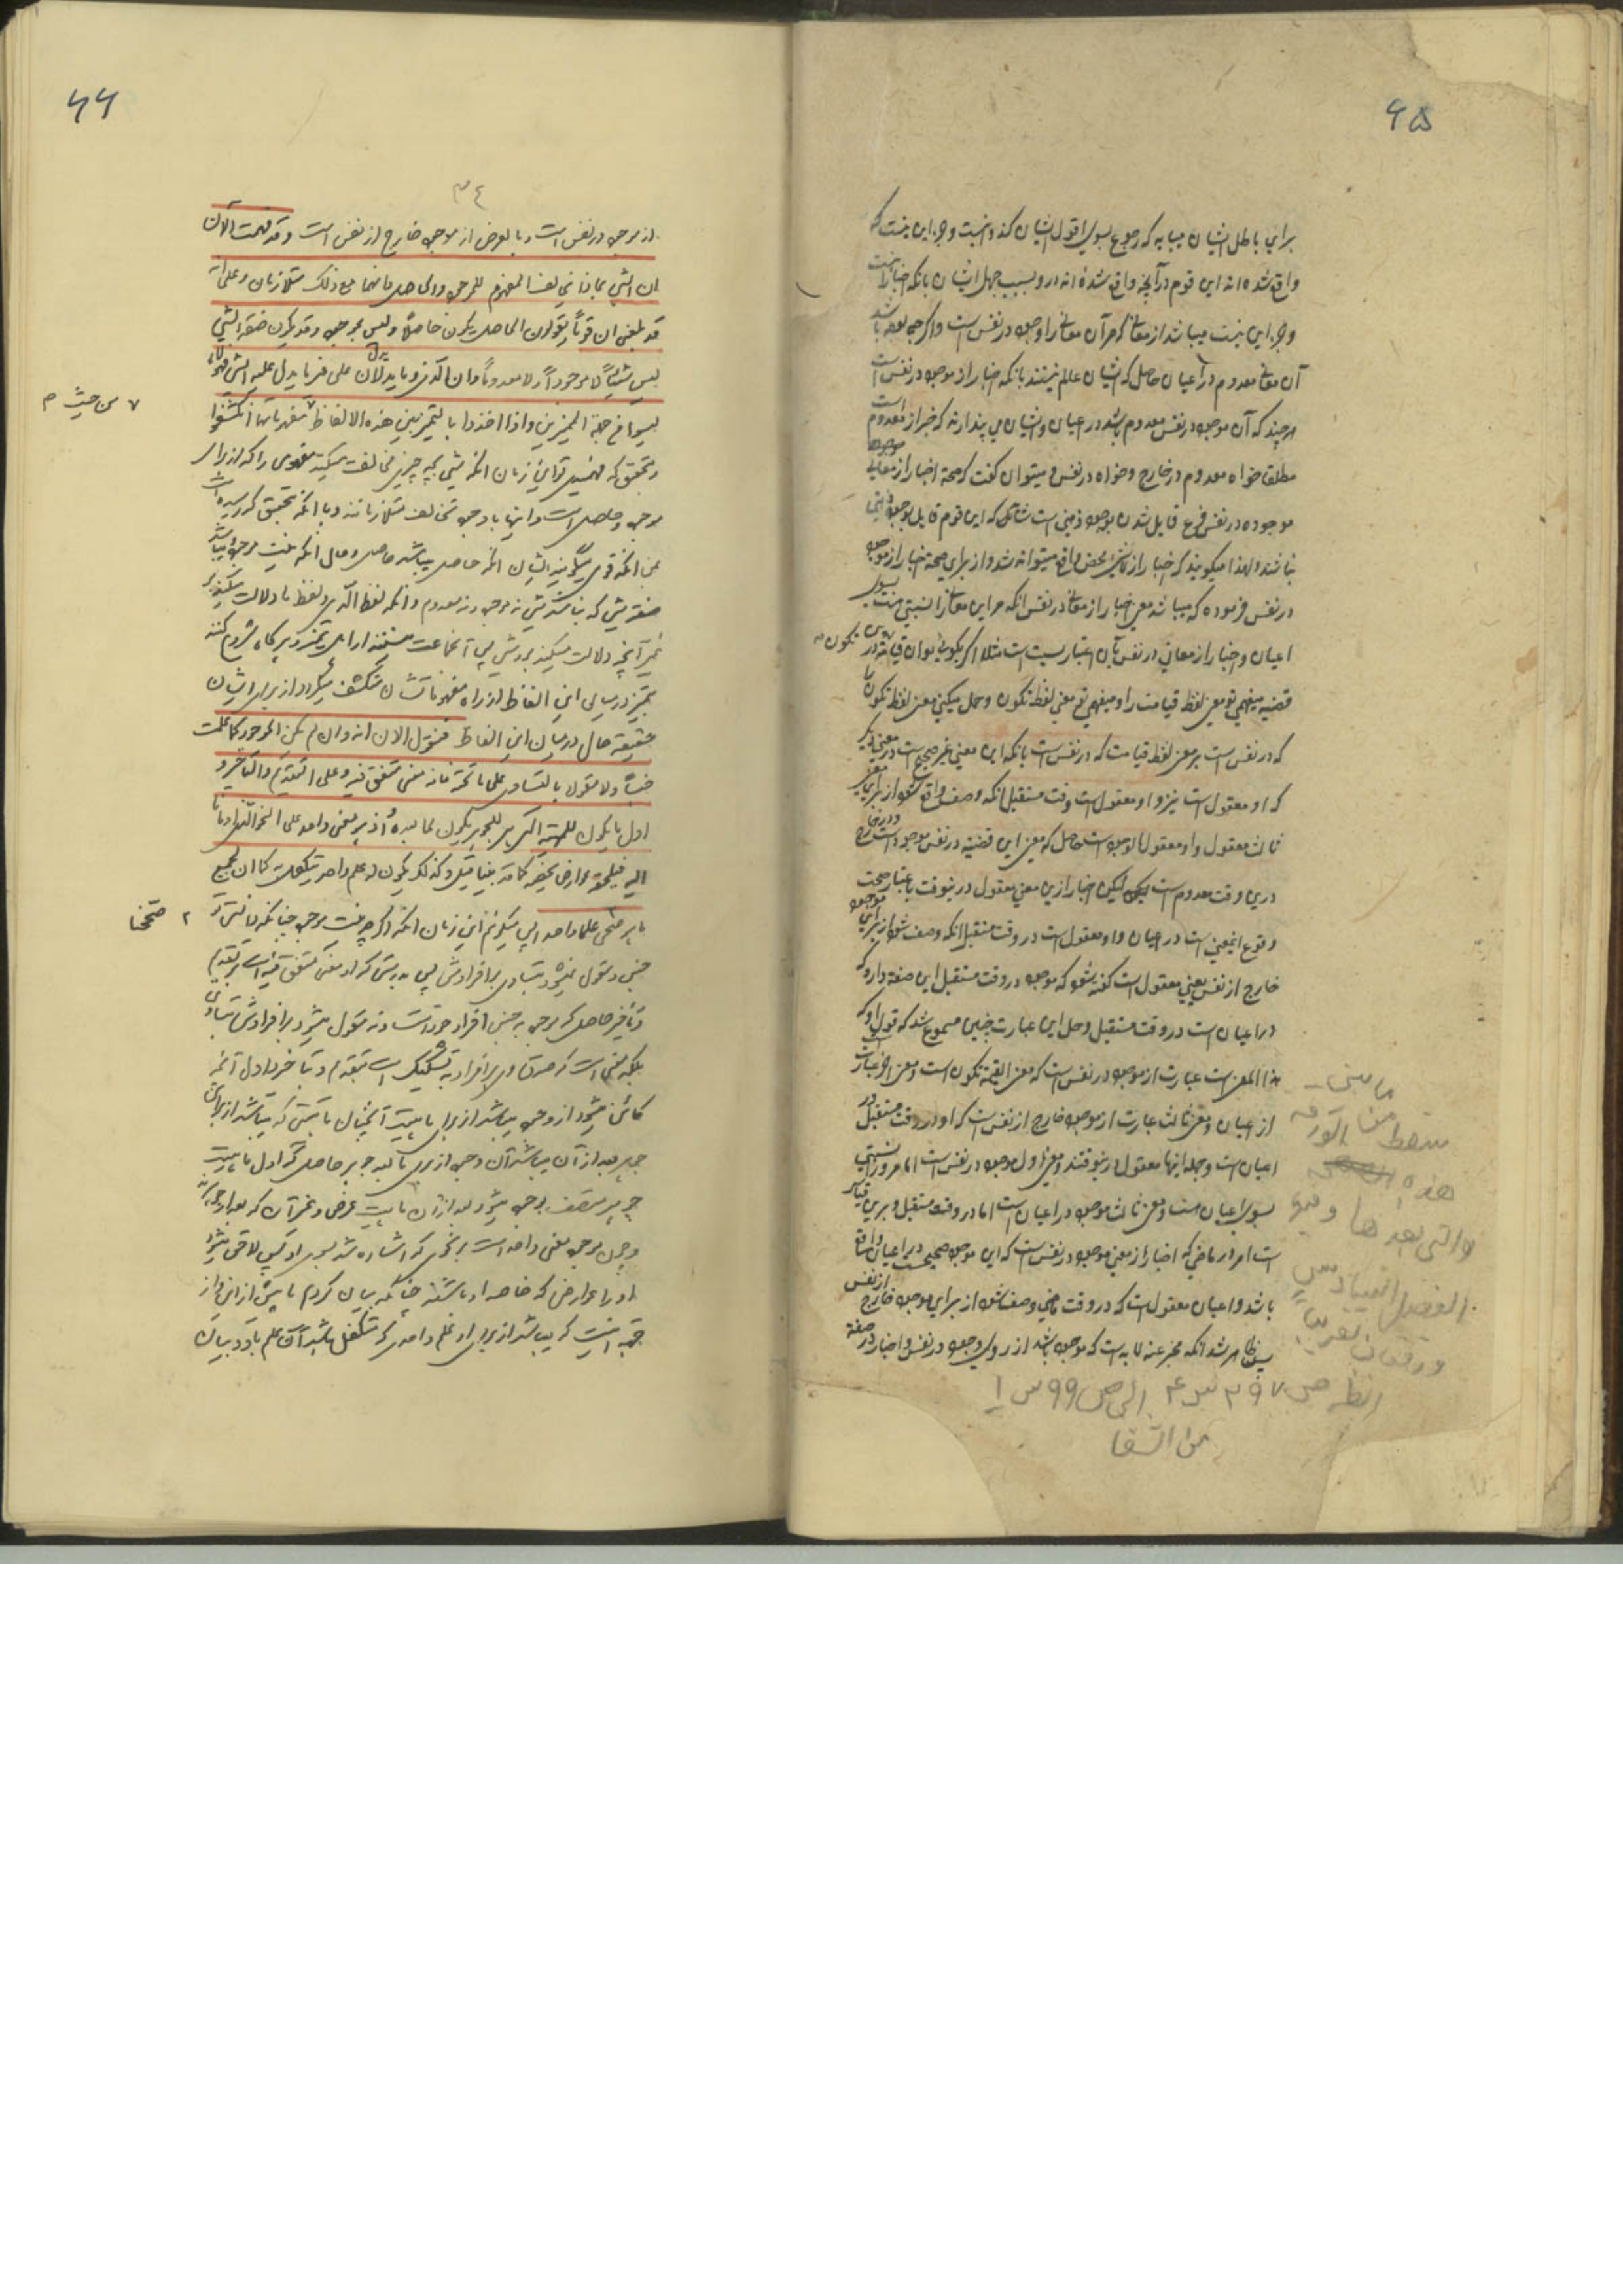 ۶۵
برای باطل ایشان میباید که رجوع بسوی اقول ایشان کند و نیست وجز این نیست که
واقع شده اند این قوم در آنچه واقع شده اند در و بسبب جهل ایشان بانکه اخبار نیست
وجز این نیست میباشد از معانی که مر آن معانی را وجود در نفس است و اگر چه بوده باشد
آن معانی معدوم در اعیان حاصل که ایشان عالم نیستند بانکه اخبار از موجود در نفس است
هر چند که آن موجود در نفس معدوم باشد در اعیان و ایشان می پندارند که خبر از معدوم است
مطلقا خواه معدوم در خارج و خواه در نفس و میتوان گفت که صحة اخبار از معانی
موجوده در نفس فرع قایل شدن بوجود ذهنی است شاید که این قوم قایل بوجود ذهنی
نباشند ولهذا میگویند که اخبار از لاشئ محض واقع میتواند شد و از برای صحة اخبار از موجود
در نفس فرموده که میباشد معنی اخبار از معانی در نفس انکه مر این معانی را نسبتی هست بسوی
اعیان و اخبار از معانی در نفس بآن اعتبار نسبت است مثلا اگر بگوئی بدان قیامة تکون در
قضیه میفهمی تو معنی لفظ قیامت را و میفهمی تو معنی لفظ تکون و حمل میکنی معنی لفظ تکون را
که در نفس است بر معنی لفظ قیامت که در نفس است بانکه این معنی غیر صحیح است در معنی دیگر
که او معقول است نیز و او معقول است وقت مستقبل انکه وصف واقع شود از برای معنی
ثالث معقول و او معقول الوجود است حاصل که معنی این قضیه در نفس موجود است و در خارج
درین وقت معدوم است لیکن اخبار ازین معنی معقول درینوقت باعتبار صحت
وقوع اینمعنی است در اعیان و او معقول است در وقت مستقبل انکه وصف شود از برای موجود
خارج از نفس یعنی معقول است گفته شود که موجود در وقت مستقبل این صفة دارد که
در اعیان است در وقت مستقبل وحل این عبارت چنین مسموع شد که قول او که
هذا المعنی است عبارت از موجود در نفس است که معنی القیمة تکون است و معنی آخر عبارت
از اعیان و معنی ثالث عبارت از موجود خارج از نفس است که او در وقت مستقبل در
اعیان است وجمله اینها معقول درینوقتند و معنی اول موجود در نفس است اما مر او را نسبتی
بسوی اعیان هست و معنی ثالث موجود در اعیان است اما در وقت مستقبل و برین قیاس
است امر در ماضی که اخبار از معنی موجود در نفس است که این موجود صحیحست در اعیان واقع
باشد و اعیان معقول است که در وقت ماضی وصف شود از برای موجود خارج از نفس
پس ظاهر شد انکه مخبر عنه لابد است که موجود باشد از روی وجود در نفس و اخبار در صفة
ما بین
سقط من الورقة
هذه
والتی بعدها و هو
الفصل السادس
ورقتان تقریبا
انظر ص ۲۹۷ س ۴ الی ص ۲۹۹ س ۱
من الشفا
۶۶
۳۴
از موجود در نفس است و بالعرض از موجود خارج از نفس است وقد فهمت الآن
ان الشئ بماذا یخالف المفهوم للموجود والحاصل وانهما مع ذلک متلازمان وعلی انه
قد بلغنی ان قوماً یقولون الحاصل یکون حاصلاً ولیس بموجود وقد یکون صفة الشئ
لیس شیئاً لا موجوداً ولا معدوماً وان الذی وما یدلان علی غیر ما یدل علیه الشئ فهولاء
لیسوا من جملة الممیزین واذا اخذوا بالتمیز بین هذه الالفاظ من حیث مفهوماتها انکشفوا
۷ من حیث م
وبتحقیق که فهمیدی تو این زمان انکه شئ بچه چیز مخالفت میکند مفهومی را که از برای
موجود وحاصل است و اینها با وجود تخالف متلازمانند وبا انکه بتحقیق که رسیده است
بمن انکه قومی میگویند ایشان انکه حاصل میباشد حاصل وحال انکه نیست موجود و میباشد
صفة شئ که نباشد شئ نه موجود و نه معدوم وانکه لفظ الذی و لفظ ما دلالت میکنند بر
غیر آنچه دلالت میکند برو شئ پس آنجماعت نیستند از اهل تمیز و هر گاه شروع کنند
بتمیز در میان این الفاظ از راه مفهوماتشان منکشف میگردد از برای ایشان
حقیقة حال در میان این الفاظ فنقول الآن انه وان لم یکن الموجود کما علمت
جنساً ولا مقولا بالتساوی علی ما تحته فانه معنی متفق فیه علی التقدیم والتأخیر و
اول ما یکون للمهیة التی هی للجوهر یکون لما بعده واذ هو معنی واحد علی النحو الذی اومأنا
الیه فیلحقه عوارض یخصه کما قد بینا قبل وکذلک یکون له علم واحد یتکفل به کما ان لجمیع
ما هو صحی علما واحدا پس میگوئیم این زمان انکه اگر چه نیست موجود چنانکه دانستی تو
۲ صححنا
جنس ومقول نمیشود بتساوی بر افرادش پس بدرستی که او معنی متفق فیه است بر تقدیم
وتأخیر حاصل که موجود نه جنس افراد خود است و نه مقول میشود بر افرادش بتساوی
بلکه معنی است که صدق او بر افراد به تشکیک است بتقدم و تأخر و اول آنچه
کائن میشود از وجود میباشد از برای ماهیت آنچنان ماهیتی که میباشد از برای
جوهر بعد از آن میباشد آن وجود از برای ما بعد جوهر حاصل که اول ماهیت
جوهر متصف بوجود میشود بعد از آن ماهیت عرض وغیر آن که بعد از جوهرند
وچون موجود معنی واحد است بر نحوی که اشاره شد بسوی او پس لاحق میشود
او را عوارضی که خاصه او باشند چنانکه بیان کردیم ما پیش از این و از
جهة اینست که میباشد از برای او علم واحدی که متکفل باشد آن علم باو و بیان